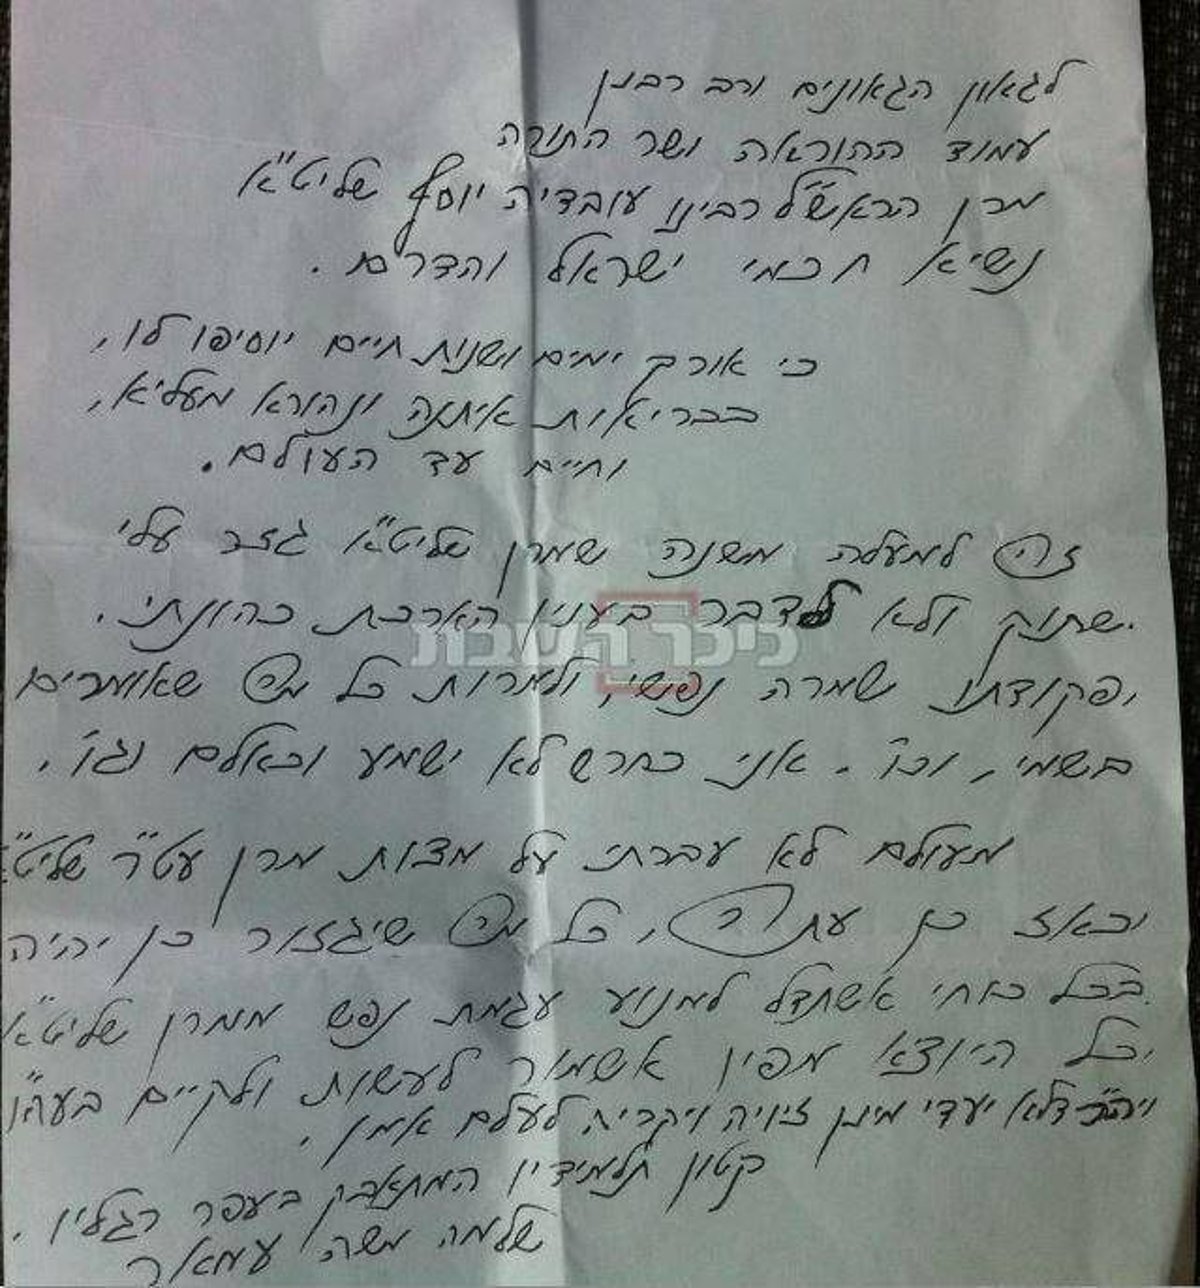 לגאון הגאונים ורב רבנן
עמוד ההוראה ושר התורה
מרן הראש"ל רבינו עובדיה יוסף שליט"א
נשיא חכמי ישראל והדרם.
כי אורך ימים ושנות חיים יוסיפו לו,
בבריאות איתנה ונהורא מעליא,
וחיים עד העולם.
זה למעלה משנה שמרן שליט"א גזר עלי
שתוק ולא לדבר בענין הארכת כהונתי.
ופקודתו שמרה נפשי, ולמרות כל מה שאומרים
בשמי, וכו'. אני כחרש לא ישמע וכאלם וגו'.
מעולם לא עברתי על מצות מרן עט"ר שליט"א
וכאז כן עתה, כל מה שיגזור כן יהיה
בכל כוחי אשתדל למנוע עגמת נפש ממרן שליט"א
וכל היוצא מפיו אשמור לעשות ולקיים בעה"י
דלא יעדי מינן זיויה ויקריה לעלם אמן.
קטון תלמידיו המתאבק בעפר רגליו.
שלמה משה עמאר
כיכר השבת